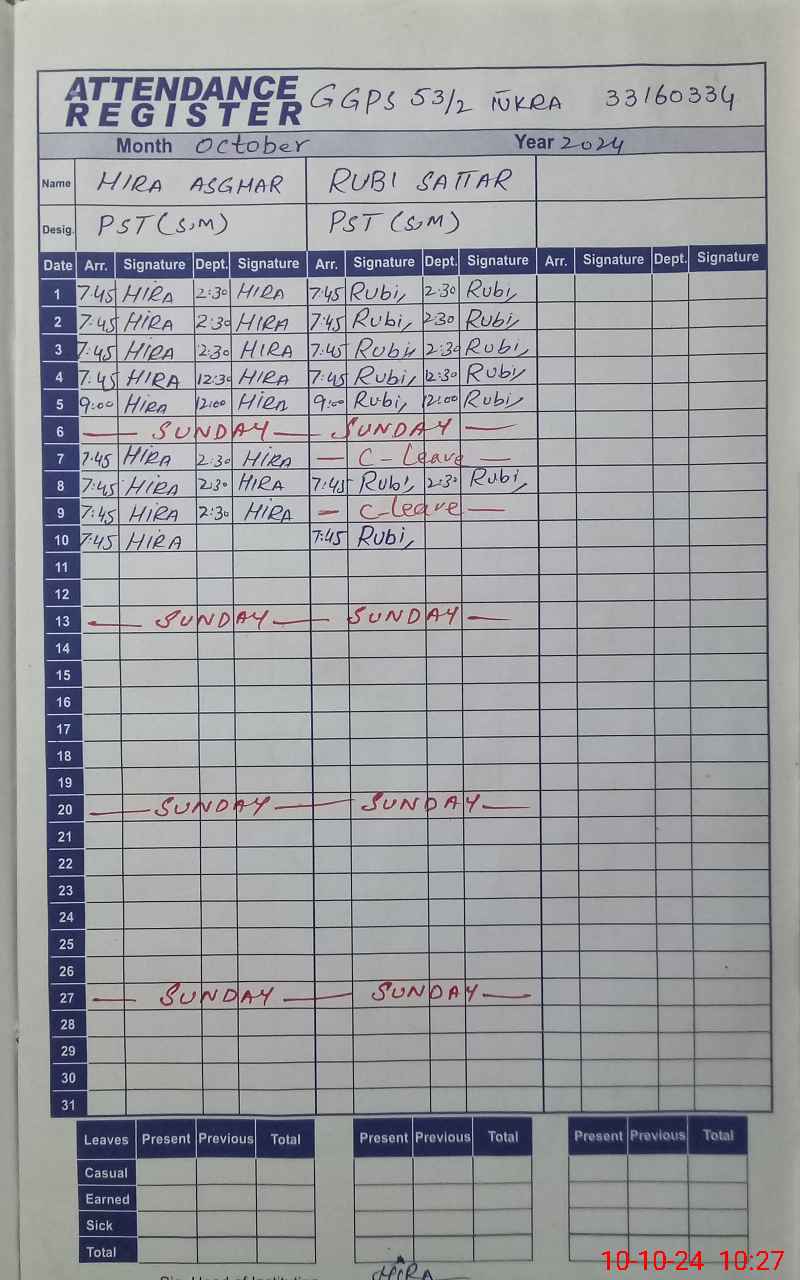 ATTENDANCE REGISTER GGPS 53/2 ÑKRA 33160334
Month October Year 2024
Name HIRA ASGHAR RUBI SATTAR
Desig. PST (S,M) PST (S,M)
Date Arr. Signature Dept. Signature Arr. Signature Dept. Signature Arr. Signature Dept. Signature
1 7:45 HIRA 2:30 HIRA 7:45 Rubi, 2:30 Rubi,
2 7:45 HIRA 2:30 HIRA 7:45 Rubi, 2:30 Rubi,
3 7:45 HIRA 2:30 HIRA 7:45 Rubi, 2:30 Rubi,
4 7:45 HIRA 12:30 HIRA 7:45 Rubi, 12:30 Rubi,
5 9:00 HIRA 12:00 HIRA 9:00 Rubi, 12:00 Rubi,
6 — SUNDAY — SUNDAY —
7 7:45 HIRA 2:30 HIRA — C-Leave —
8 7:45 HIRA 2:30 HIRA 7:45 Rubi, 2:30 Rubi,
9 7:45 HIRA 2:30 HIRA — C-Leave —
10 7:45 HIRA 7:45 Rubi,
11
12
13 — SUNDAY — SUNDAY —
14
15
16
17
18
19
20 — SUNDAY — SUNDAY —
21
22
23
24
25
26
27 — SUNDAY — SUNDAY —
28
29
30
31
Leaves Present Previous Total Present Previous Total Present Previous Total
Casual
Earned
Sick
Total
HIRA
10-10-24 10:27